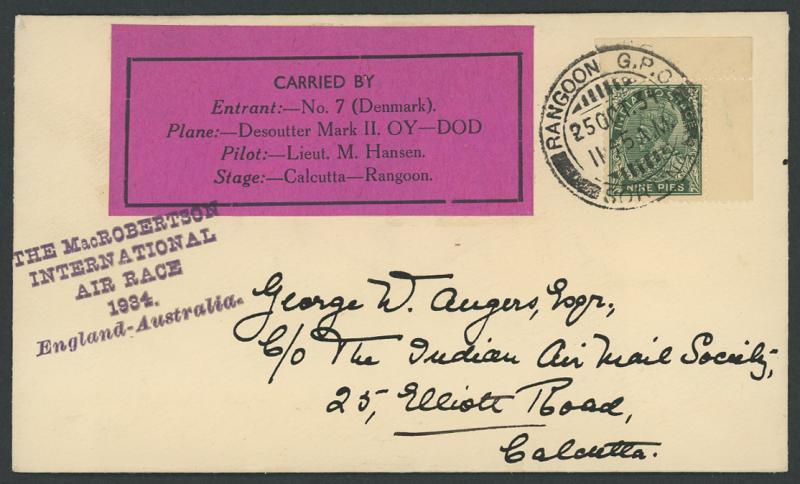 CARRIED BY
Entrant:—No. 7 (Denmark).
Plane:—Desoutter Mark II. OY—DOD
Pilot:—Lieut. M. Hansen.
Stage:—Calcutta—Rangoon.
RANGOON G.P.O.
25 OC
NINE PIES
THE MacROBERTSON
INTERNATIONAL
AIR RACE
1934.
England-Australia.
George W. Angers, Esqr.,
C/o The Indian Air Mail Society,
25, Elliott Road,
Calcutta.